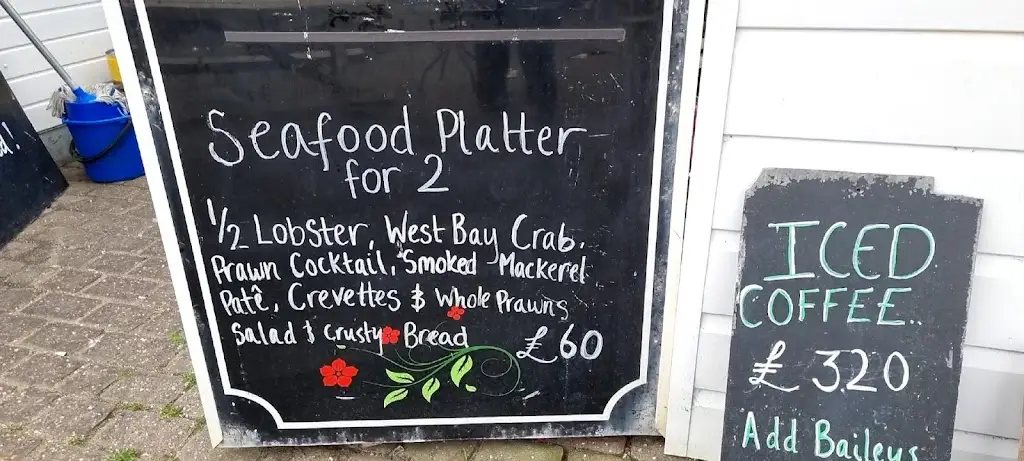 d!
Seafood Platter
for 2
1/2 Lobster, West Bay Crab,
Prawn Cocktail, Smoked Mackerel
Patê, Crevettes & Whole Prawns
Salad & Crusty Bread £60
ICED
COFFEE..
£ 320
Add Baileys